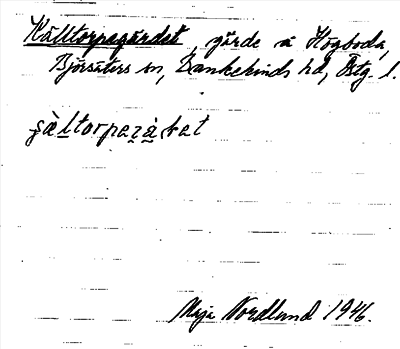 Källtorpagärdet, gärde å Högboda,
Björsäters sn, Bankekinds hd, Östg. l.
Maja Nordlund 1946.